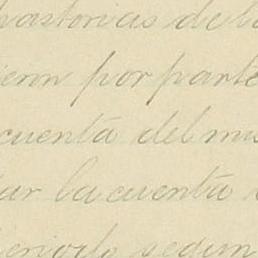 pastorias de la
ieron por parte
cuenta del mu
ar la cuenta
periodo segun